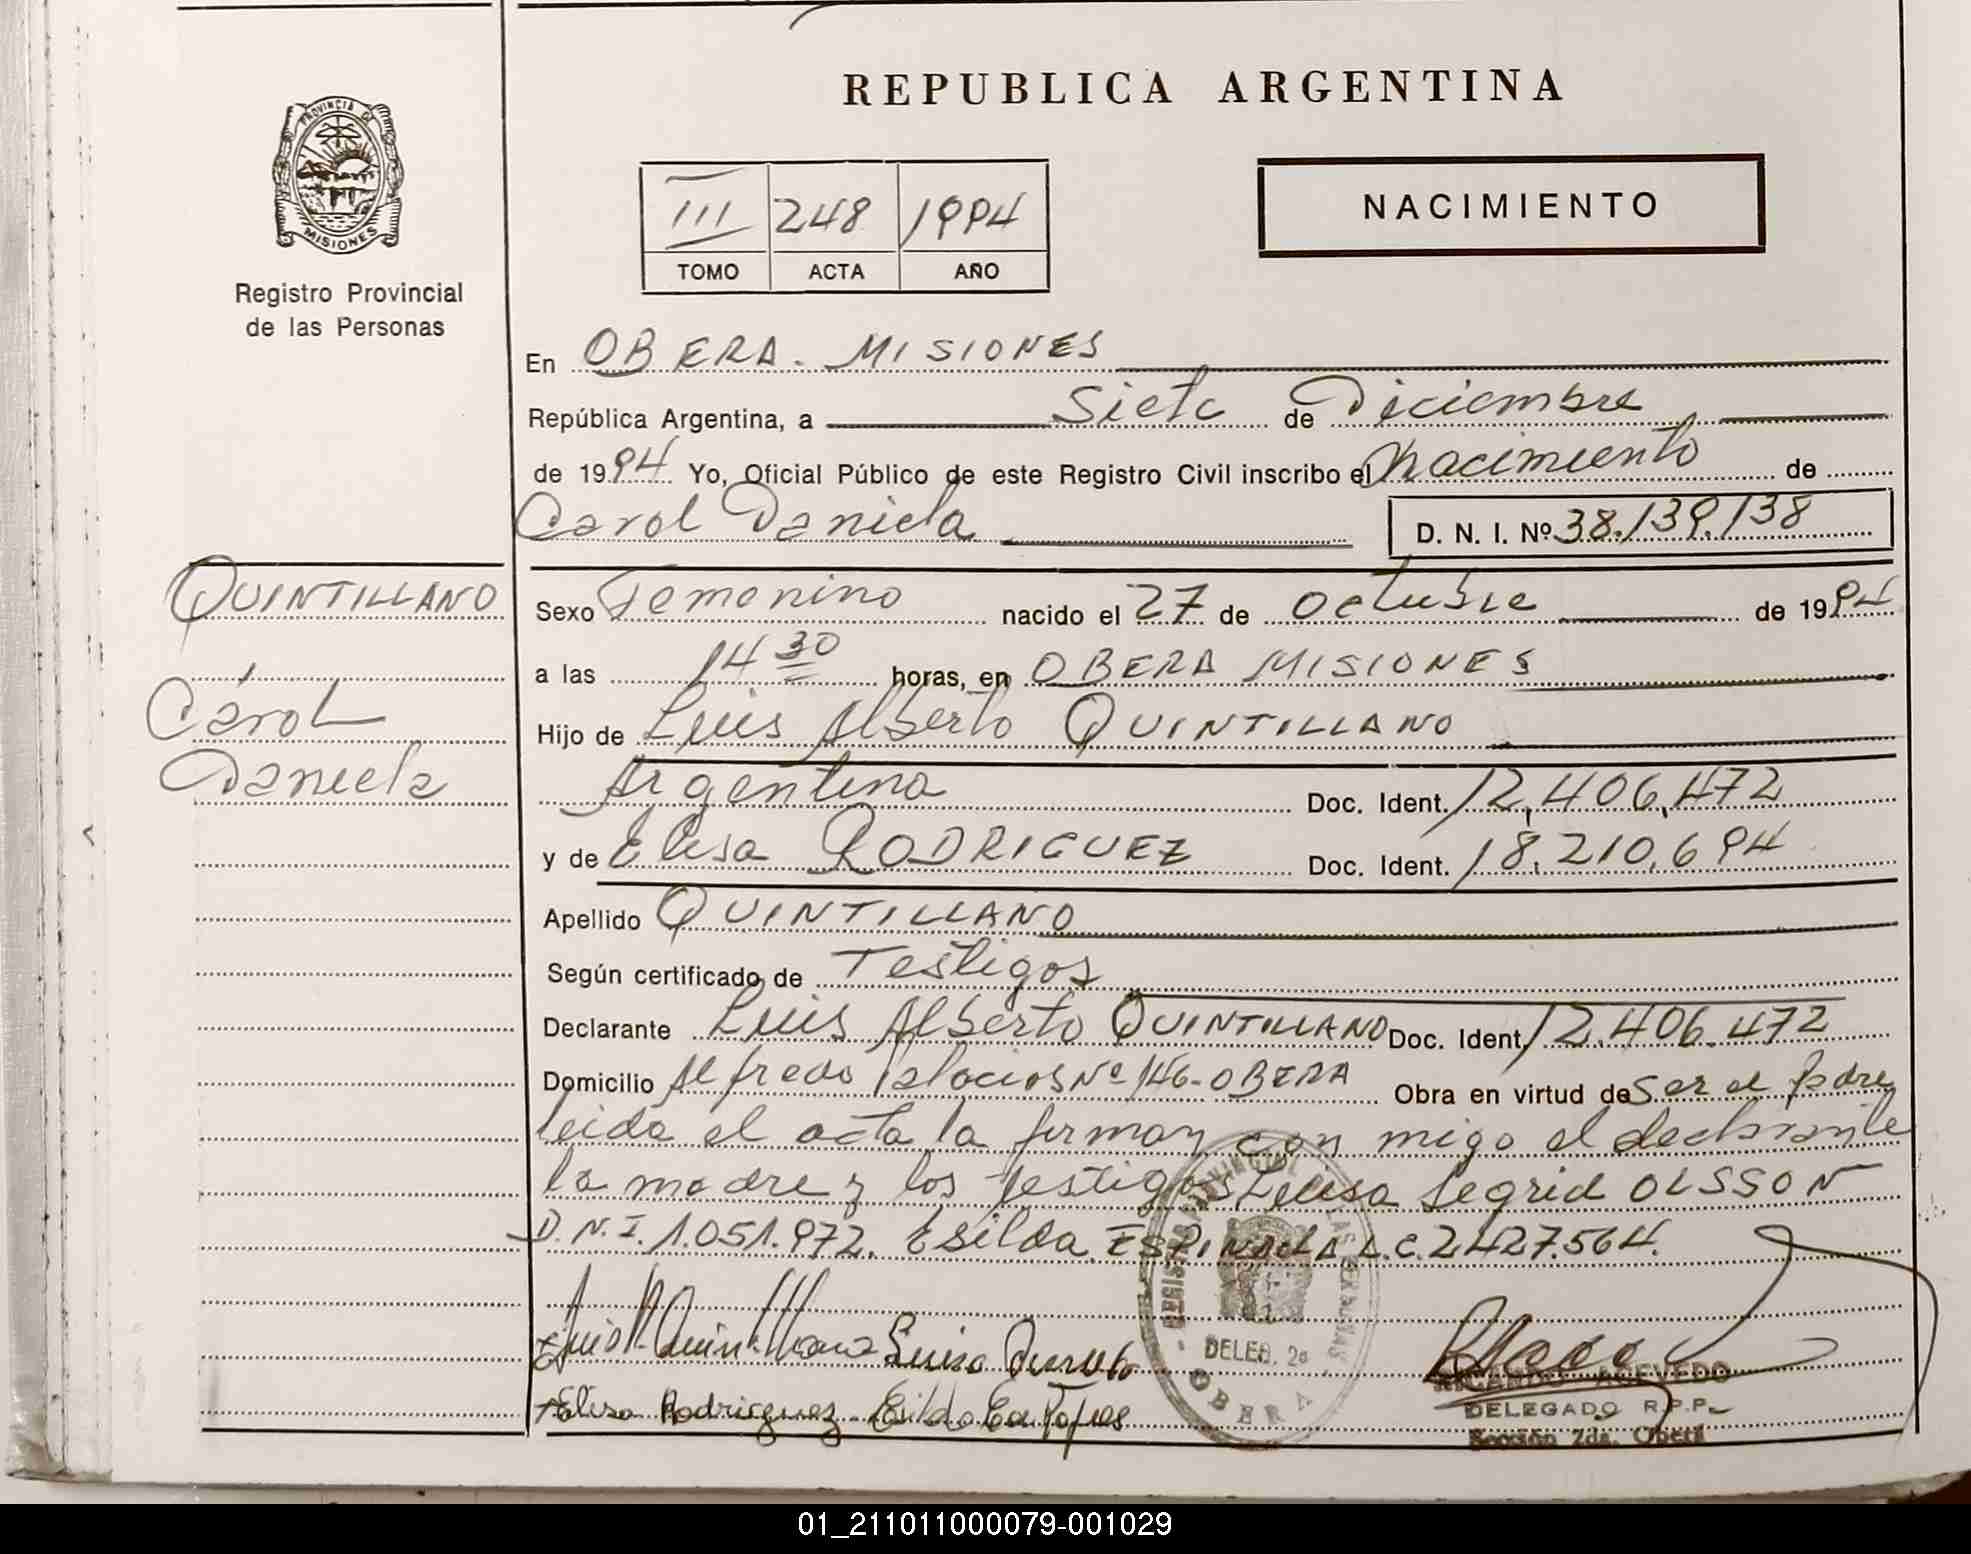 REPUBLICA ARGENTINA
PROVINCIA DE
MISIONES
Registro Provincial
de las Personas
III 248 1994
TOMO ACTA AÑO
NACIMIENTO
En OBERA. MISIONES
República Argentina, a Siete de Diciembre
de 1994 Yo, Oficial Público de este Registro Civil inscribo el Nacimiento de
Carol Daniela D. N. I. Nº 38.139.138
QUINTILLANO
Carol
Daniela
Sexo Femenino nacido el 27 de octubre de 1994
a las 14 30 horas, en OBERA MISIONES
Hijo de Luis Alberto QUINTILLANO
Argentina Doc. Ident. 12.406.472
y de Elisa RODRIGUEZ Doc. Ident. 18.210.694
Apellido QUINTILLANO
Según certificado de Testigos
Declarante Luis Alberto QUINTILLANO Doc. Ident. 12.406.472
Domicilio Alfredo Palacios Nº 146-OBERA Obra en virtud de Ser el padre
leida el acta la firman con migo el declarante
la madre y los testigos Luisa Segrid OLSSON
D.N.I. 1.051.972. Esilda L.C. 2427.564.
DELEG. 2a
OBERA
Elisa Rodriguez
RICARDO ACEVEDO
DELEGADO R.P.P.
Sección 2da. Oberá
01_211011000079-001029